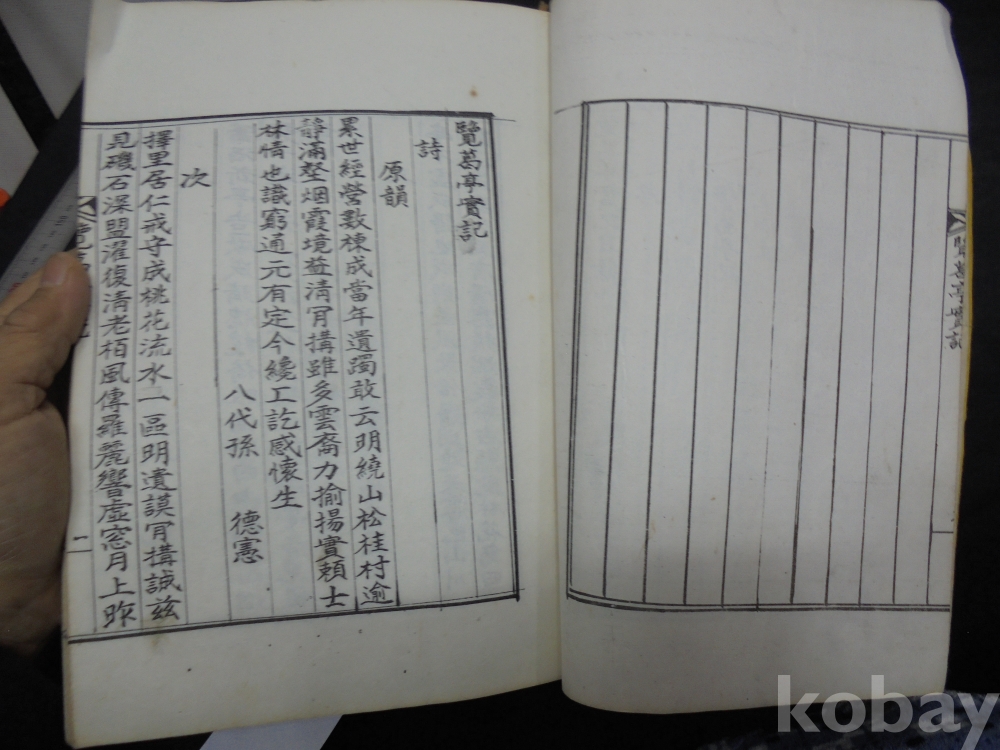 覽葛亭實記
詩
原韻
累世經營數棟成當年遺躅敢云明繞山松桂村逾
靜滿壑烟霞境益淸肎搆雖多雲裔力揄揚實賴士
林情也識窮通元有定今纔工訖感懷生
八代孫 德憲
次
擇里居仁戒守成桃花流水一區明遺謨肎搆誠玆
見磯石深盟濯復淸老栢風傳羅麗響虛窓月上昨
一
覽葛亭實記
kobay